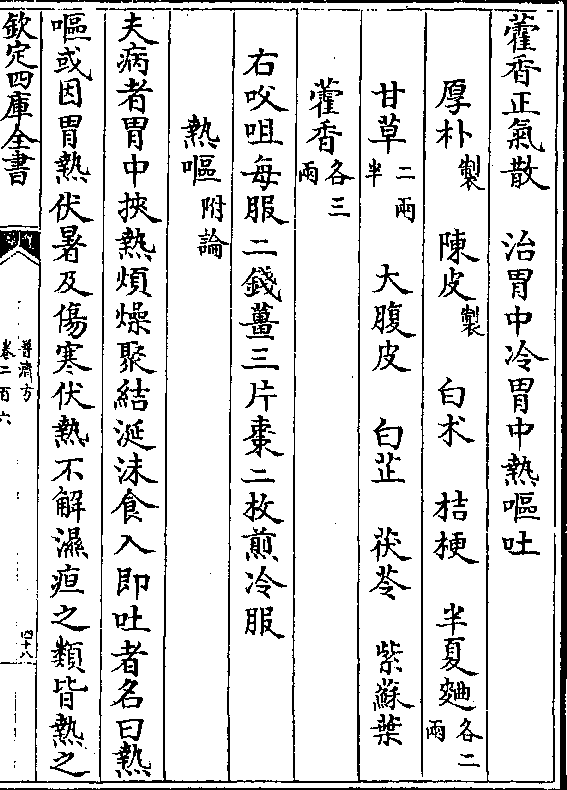 藿香正氣散　治胃中冷胃中熱嘔吐
厚朴製　陳皮製　白术　桔梗　半夏麯各二兩
甘草二兩半　大腹皮　白芷　茯苓　紫蘇葉
藿香各三兩
右㕮咀每服二錢薑三片棗二枚煎冷服
熱嘔附論
夫病者胃中挾熱煩燥聚結涎沫食入即吐者名曰熱
嘔或因胃熱伏暑及傷寒伏熱不解濕疸之類皆熱之
欽定四庫全書
普濟方
卷二百六
四十八